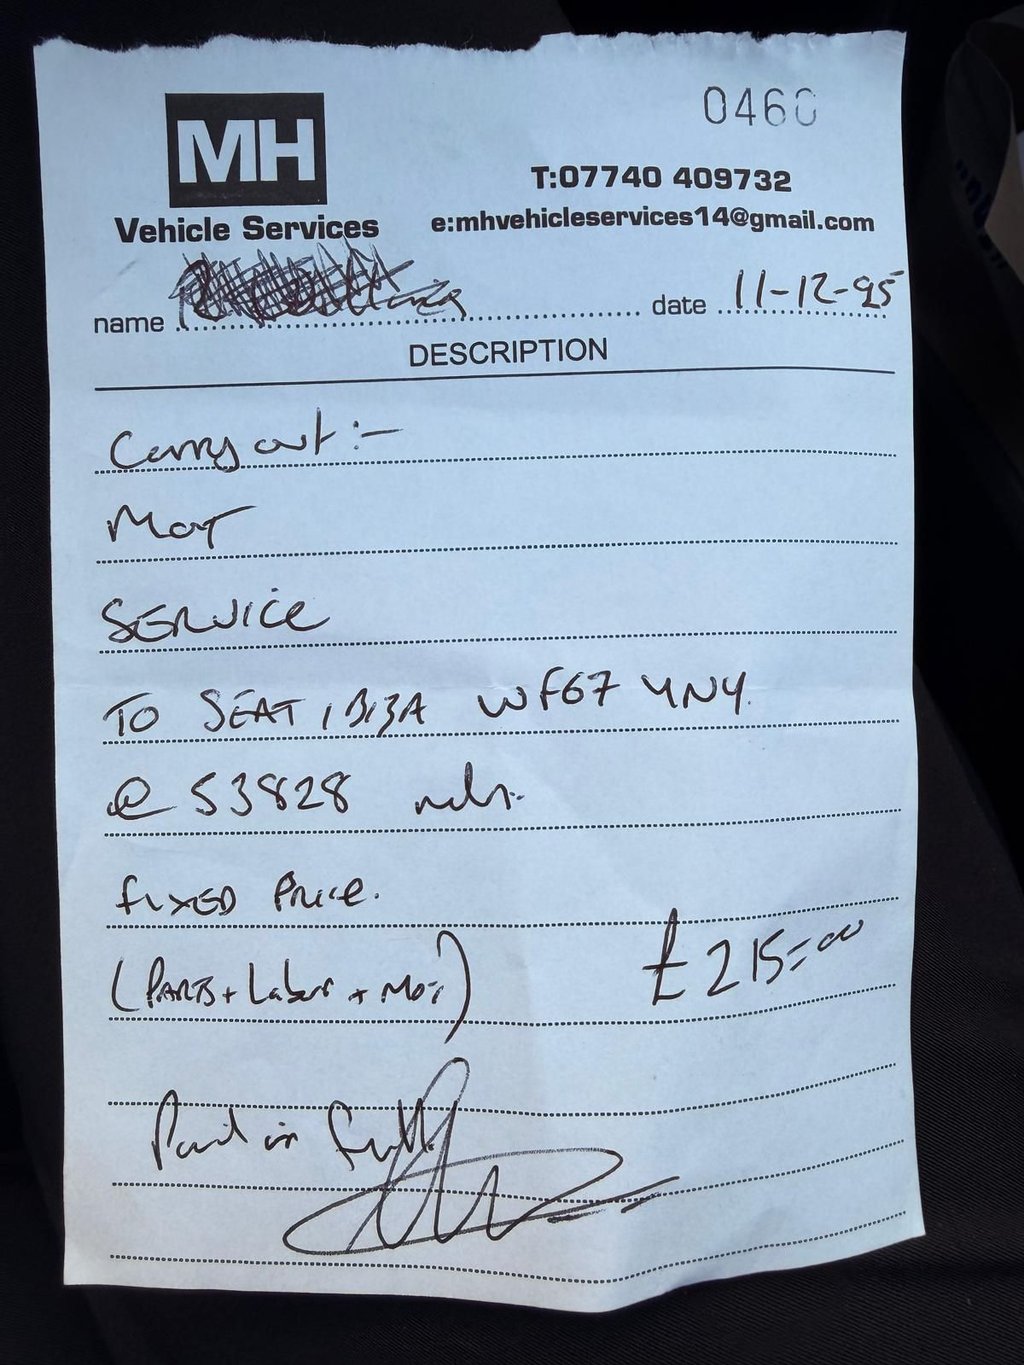 0460
MH
Vehicle Services
T:07740 409732
e:mhvehicleservices14@gmail.com
name date 11-12-25
DESCRIPTION
Carry out :-
MOT
SERVICE
TO SEAT IBIZA WF67 YNY.
@ 53828 mls.
FIXED PRICE.
(PARTS + Labour + MOT) £215=00
Paid in full.